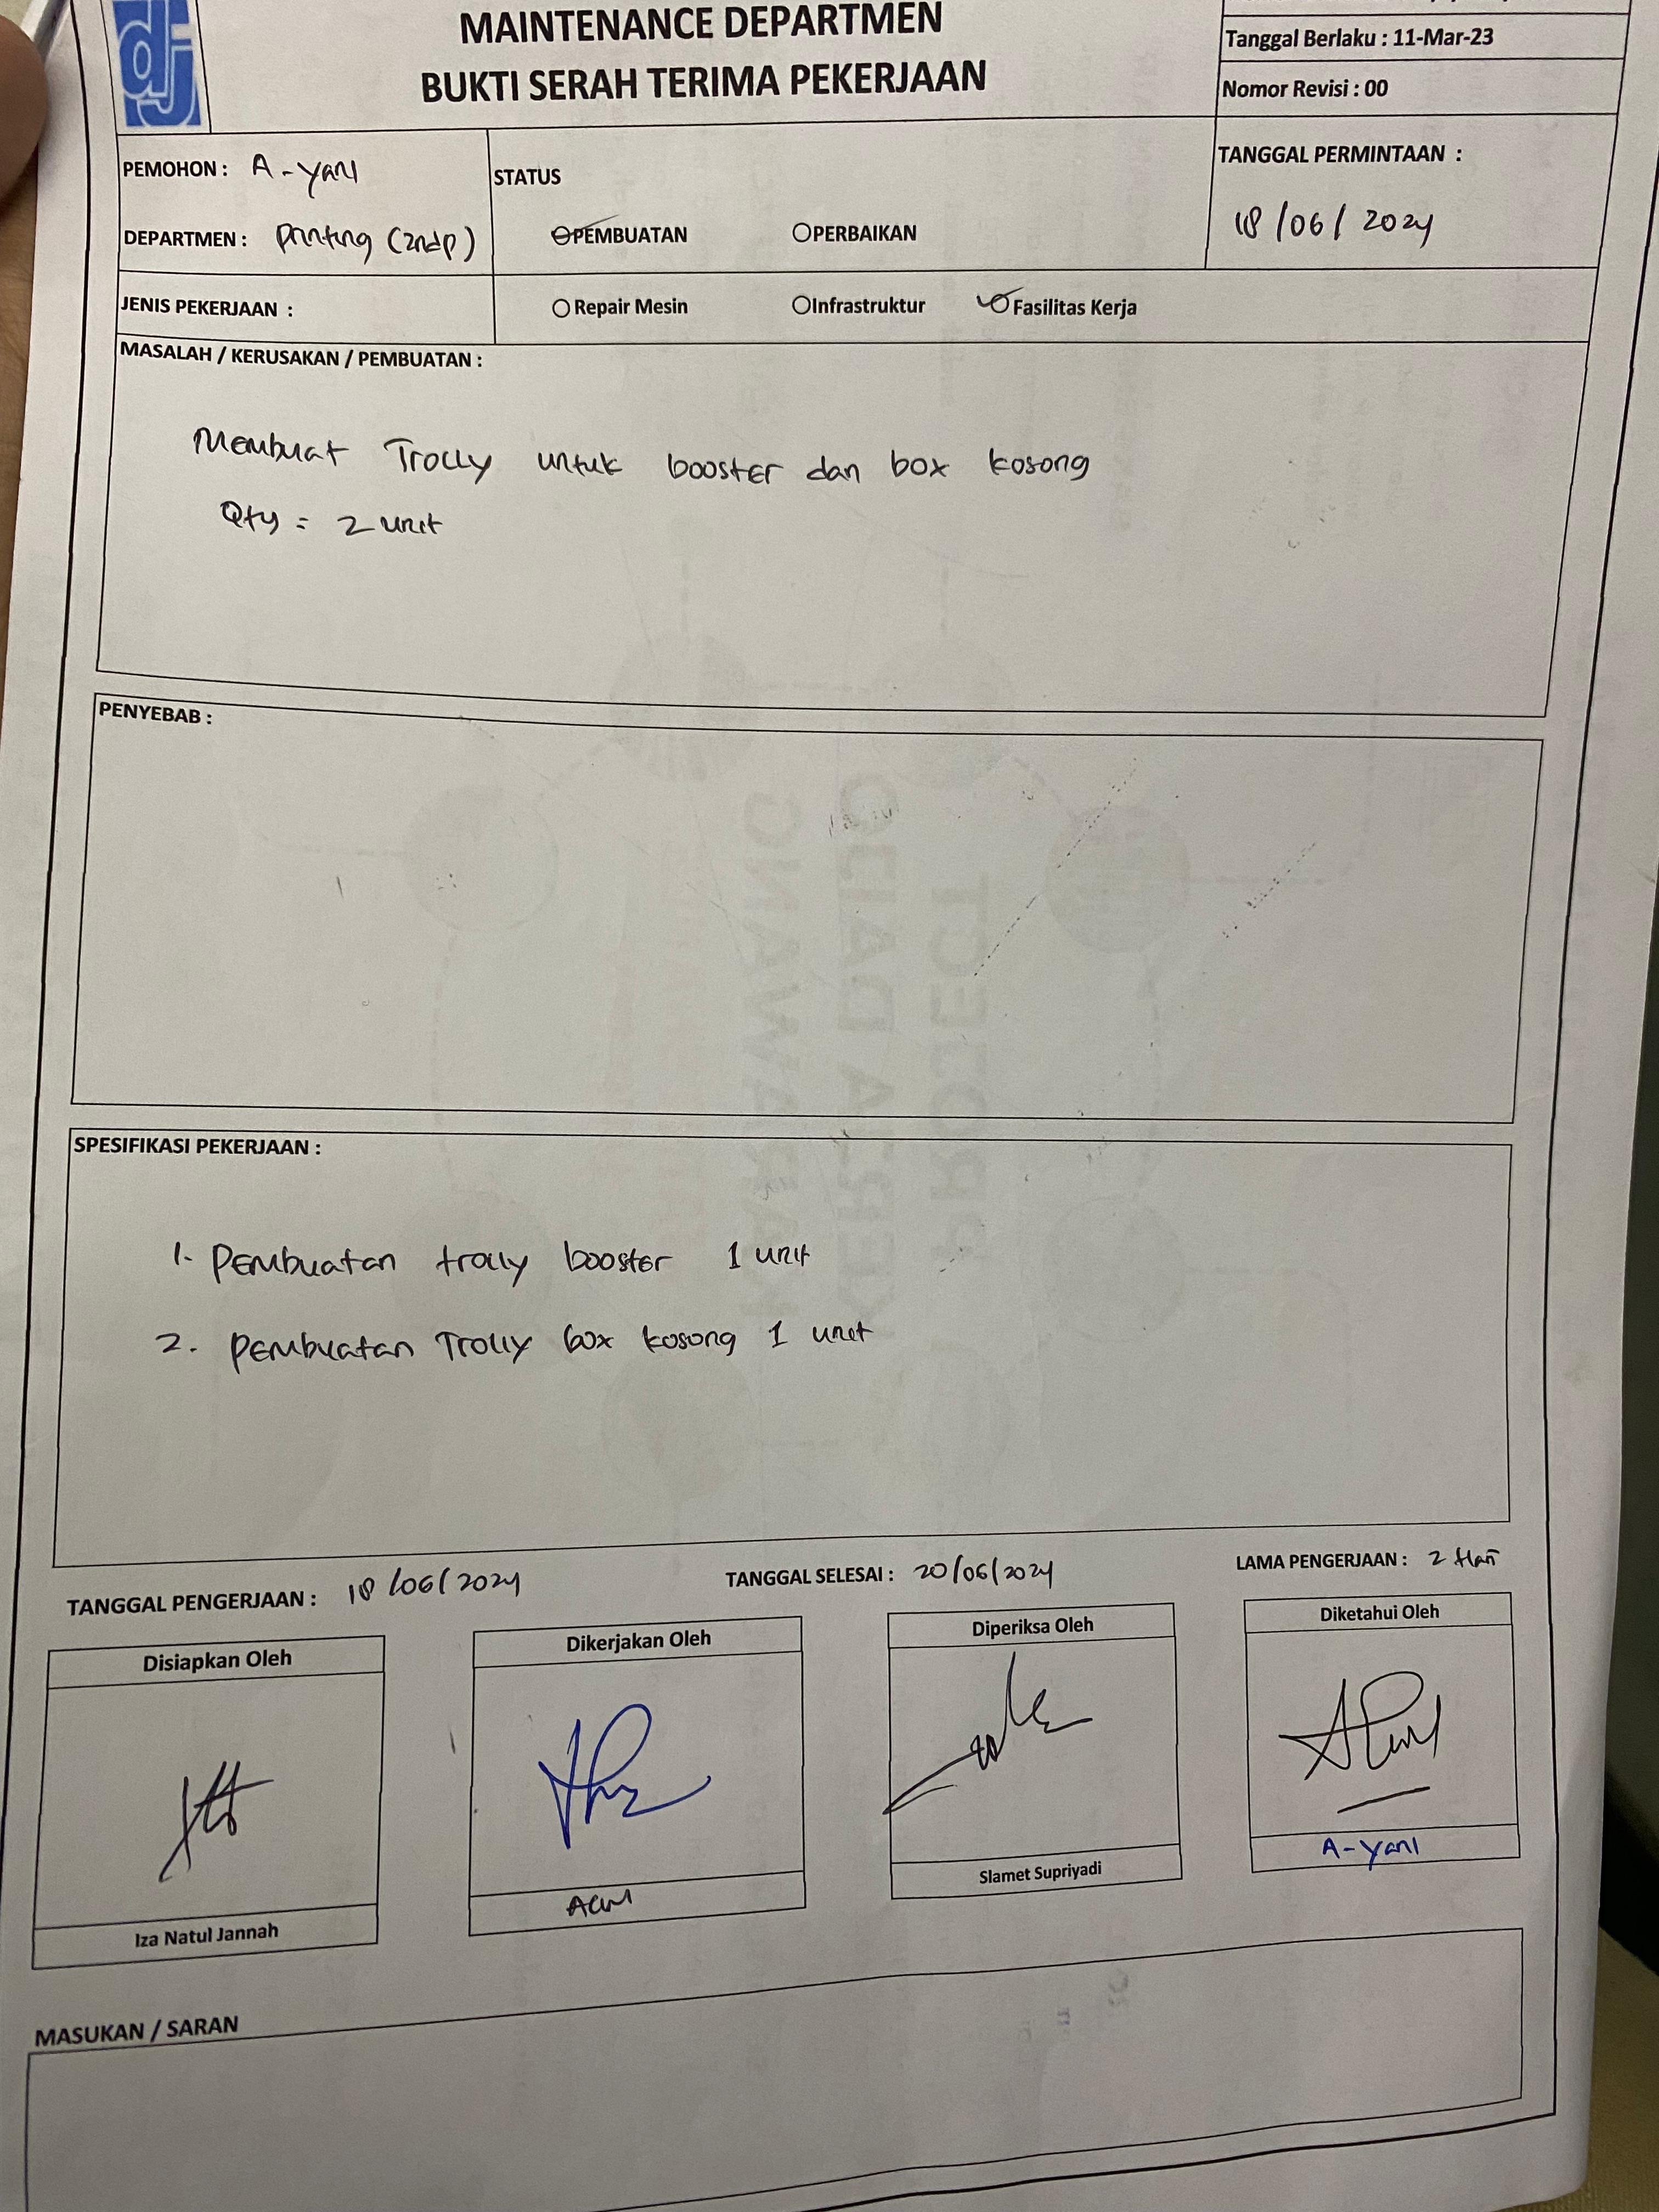 dj
MAINTENANCE DEPARTMEN
BUKTI SERAH TERIMA PEKERJAAN
Tanggal Berlaku : 11-Mar-23
Nomor Revisi : 00
PEMOHON : A-yani
DEPARTMEN : Printing (2ndp)
STATUS
OPEMBUATAN OPERBAIKAN
TANGGAL PERMINTAAN :
18/06/2024
JENIS PEKERJAAN :
O Repair Mesin OInfrastruktur O Fasilitas Kerja
MASALAH / KERUSAKAN / PEMBUATAN :
Membuat Trolly untuk booster dan box kosong
Qty = 2 unit
PENYEBAB :
SPESIFIKASI PEKERJAAN :
1. Pembuatan trolly booster 1 unit
2. Pembuatan Trolly box kosong 1 unit
TANGGAL PENGERJAAN : 18/06/2024 TANGGAL SELESAI : 20/06/2024 LAMA PENGERJAAN : 2 Hari
Disiapkan Oleh Dikerjakan Oleh Diperiksa Oleh Diketahui Oleh
Iza Natul Jannah Slamet Supriyadi A-yani
MASUKAN / SARAN